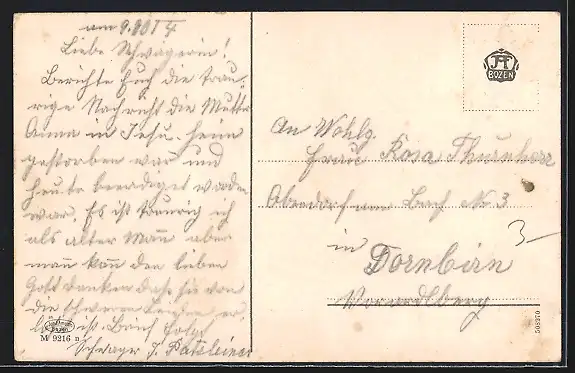 am 9.
Liebe Schwägerin!
Berichte Euch die trau-
rige Nachricht die Mutter
Anna in Jesu-Heim
gestorben war und
heute beerdiget worden
war. Es ist traurig ich
als alter Mann aber
man kan den lieben
Gott danken daß sie von
die schweren Leiden er
löst ist. Brief folgt
Schwager J.
M 9216 a
BOZEN
An Wohlg.
Frau Rosa Thurnherr
Oberdorf am Bach No 3
3-
in
Dornbirn
Vorarlberg
508370